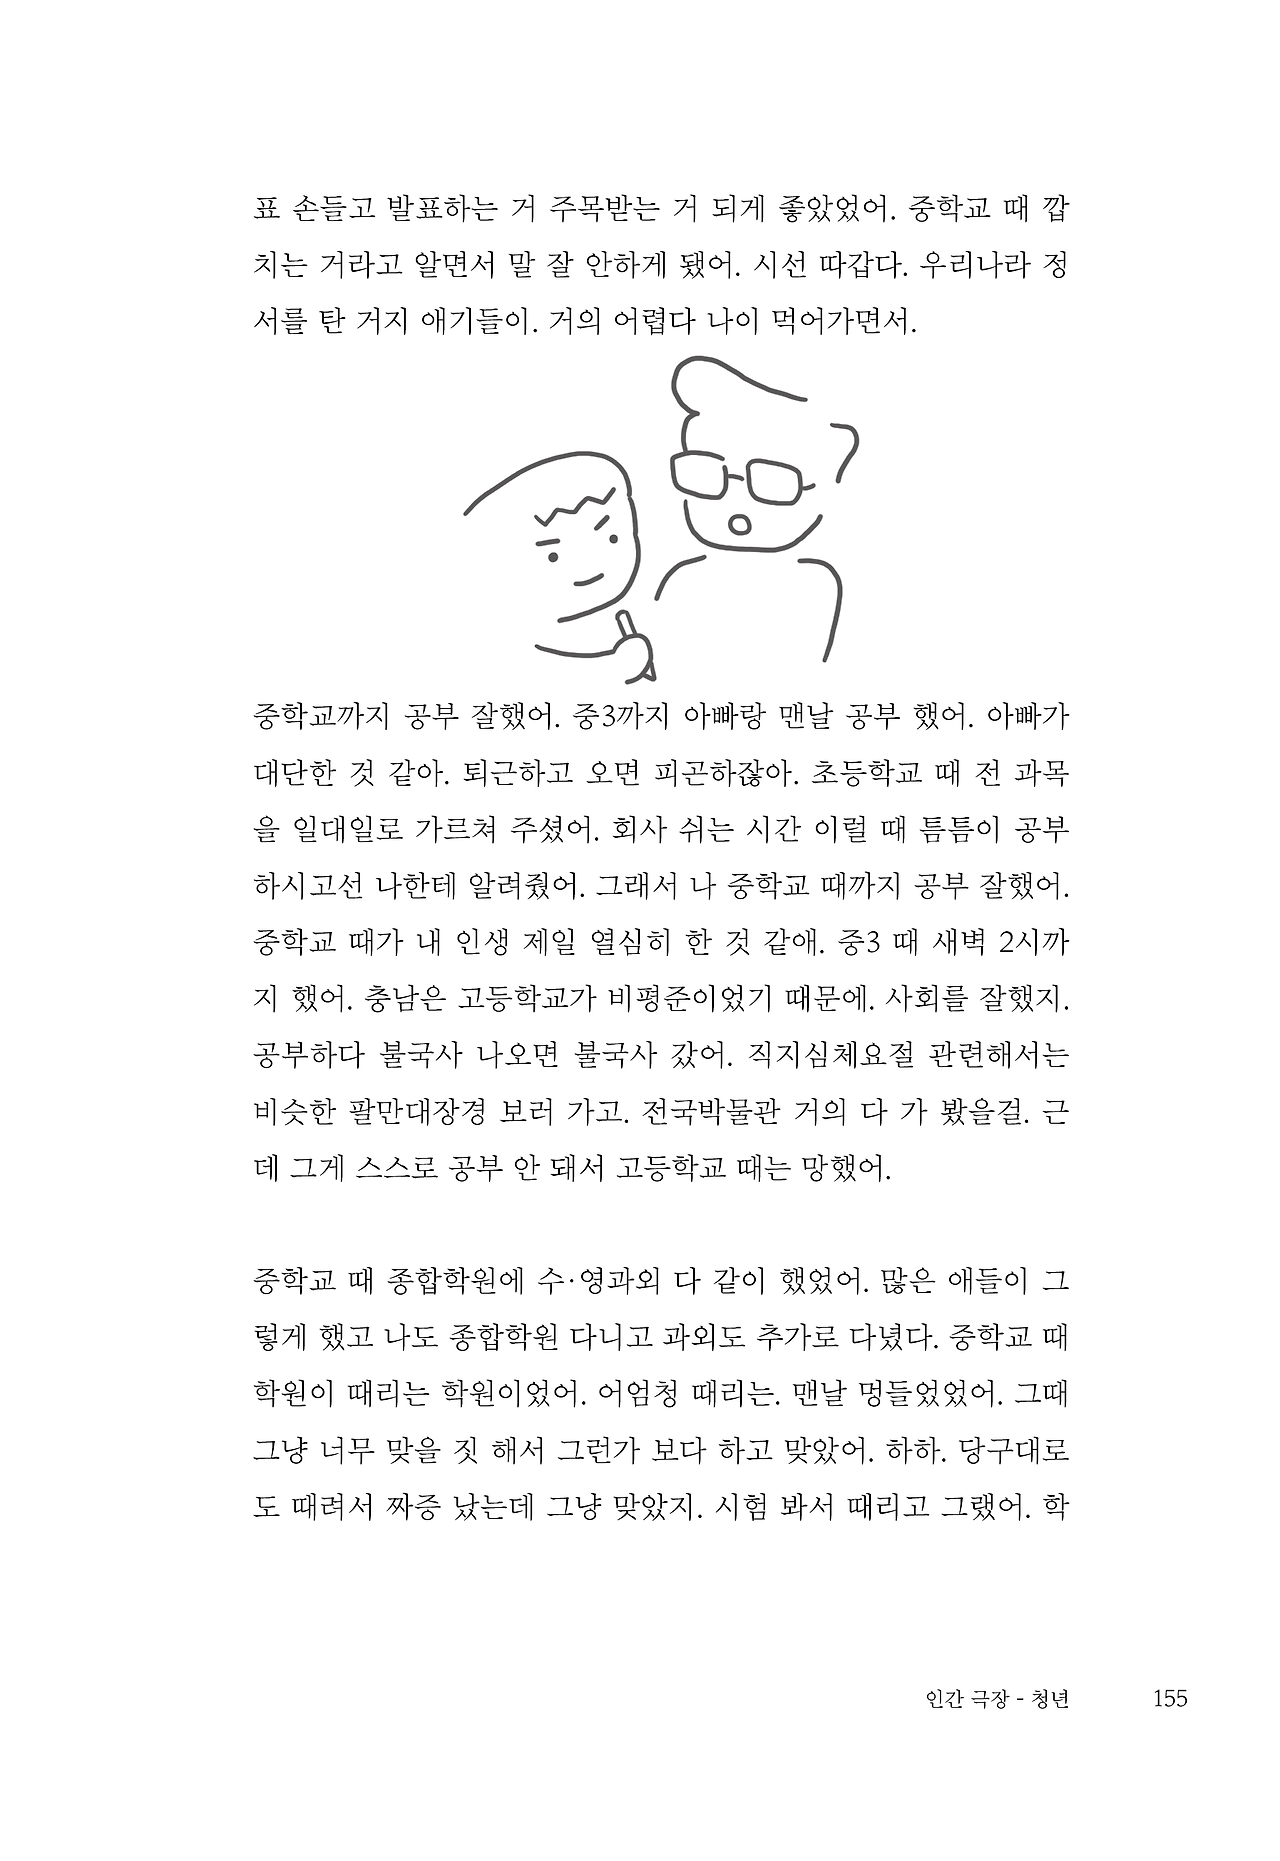 표 손들고 발표하는 거 주목받는 거 되게 좋았었어. 중학교 때 깝
치는 거라고 알면서 말 잘 안하게 됐어. 시선 따갑다. 우리나라 정
서를 탄 거지 애기들이. 거의 어렵다 나이 먹어가면서.
중학교까지 공부 잘했어. 중3까지 아빠랑 맨날 공부 했어. 아빠가
대단한 것 같아. 퇴근하고 오면 피곤하잖아. 초등학교 때 전 과목
을 일대일로 가르쳐 주셨어. 회사 쉬는 시간 이럴 때 틈틈이 공부
하시고선 나한테 알려줬어. 그래서 나 중학교 때까지 공부 잘했어.
중학교 때가 내 인생 제일 열심히 한 것 같애. 중3 때 새벽 2시까
지 했어. 충남은 고등학교가 비평준이었기 때문에. 사회를 잘했지.
공부하다 불국사 나오면 불국사 갔어. 직지심체요절 관련해서는
비슷한 팔만대장경 보러 가고. 전국박물관 거의 다 가 봤을걸. 근
데 그게 스스로 공부 안 돼서 고등학교 때는 망했어.
중학교 때 종합학원에 수·영과외 다 같이 했었어. 많은 애들이 그
렇게 했고 나도 종합학원 다니고 과외도 추가로 다녔다. 중학교 때
학원이 때리는 학원이었어. 어엄청 때리는. 맨날 멍들었었어. 그때
그냥 너무 맞을 짓 해서 그런가 보다 하고 맞았어. 하하. 당구대로
도 때려서 짜증 났는데 그냥 맞았지. 시험 봐서 때리고 그랬어. 학
인간 극장 - 청년 155